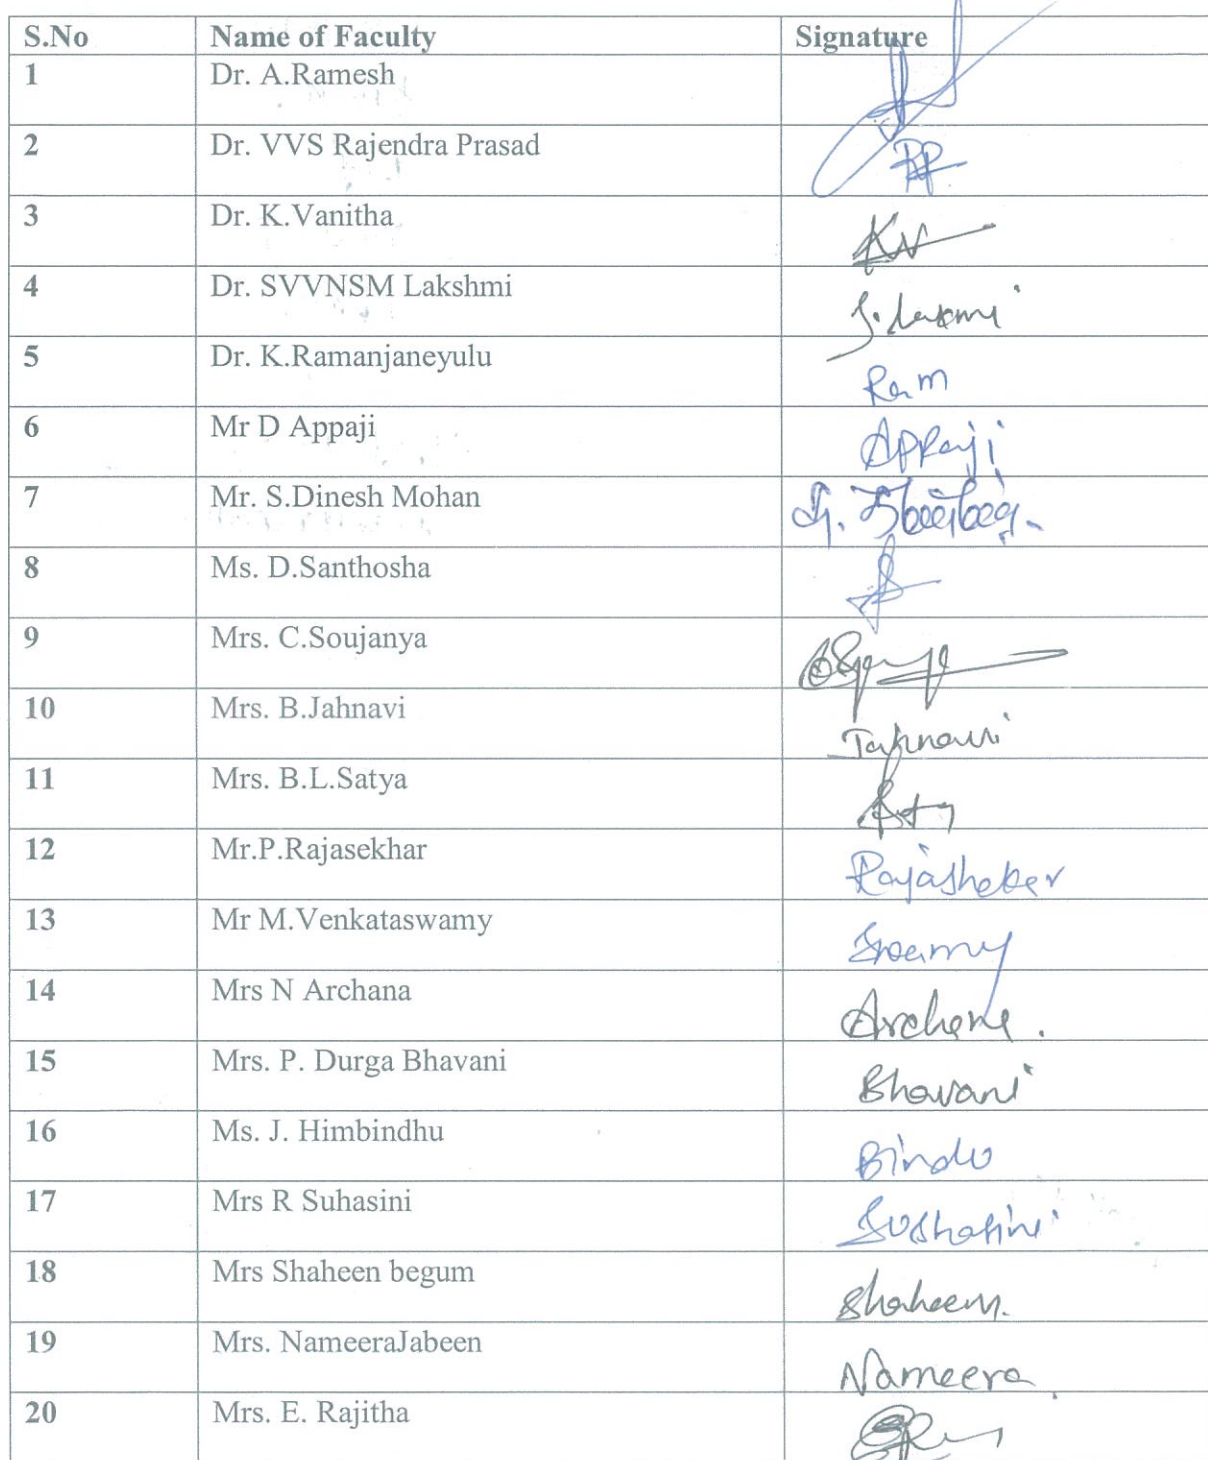 S.No Name of Faculty Signature
1 Dr. A.Ramesh
2 Dr. VVS Rajendra Prasad RP
3 Dr. K.Vanitha KV
4 Dr. SVVNSM Lakshmi S. Laxmi
5 Dr. K.Ramanjaneyulu Ram
6 Mr D Appaji Appaji
7 Mr. S.Dinesh Mohan
8 Ms. D.Santhosha
9 Mrs. C.Soujanya
10 Mrs. B.Jahnavi Jahnavi
11 Mrs. B.L.Satya
12 Mr.P.Rajasekhar Rajasheker
13 Mr M.Venkataswamy Swamy
14 Mrs N Archana Archana.
15 Mrs. P. Durga Bhavani Bhavani
16 Ms. J. Himbindhu Bindu
17 Mrs R Suhasini Sushasini
18 Mrs Shaheen begum Shaheen.
19 Mrs. NameeraJabeen Nameera
20 Mrs. E. Rajitha